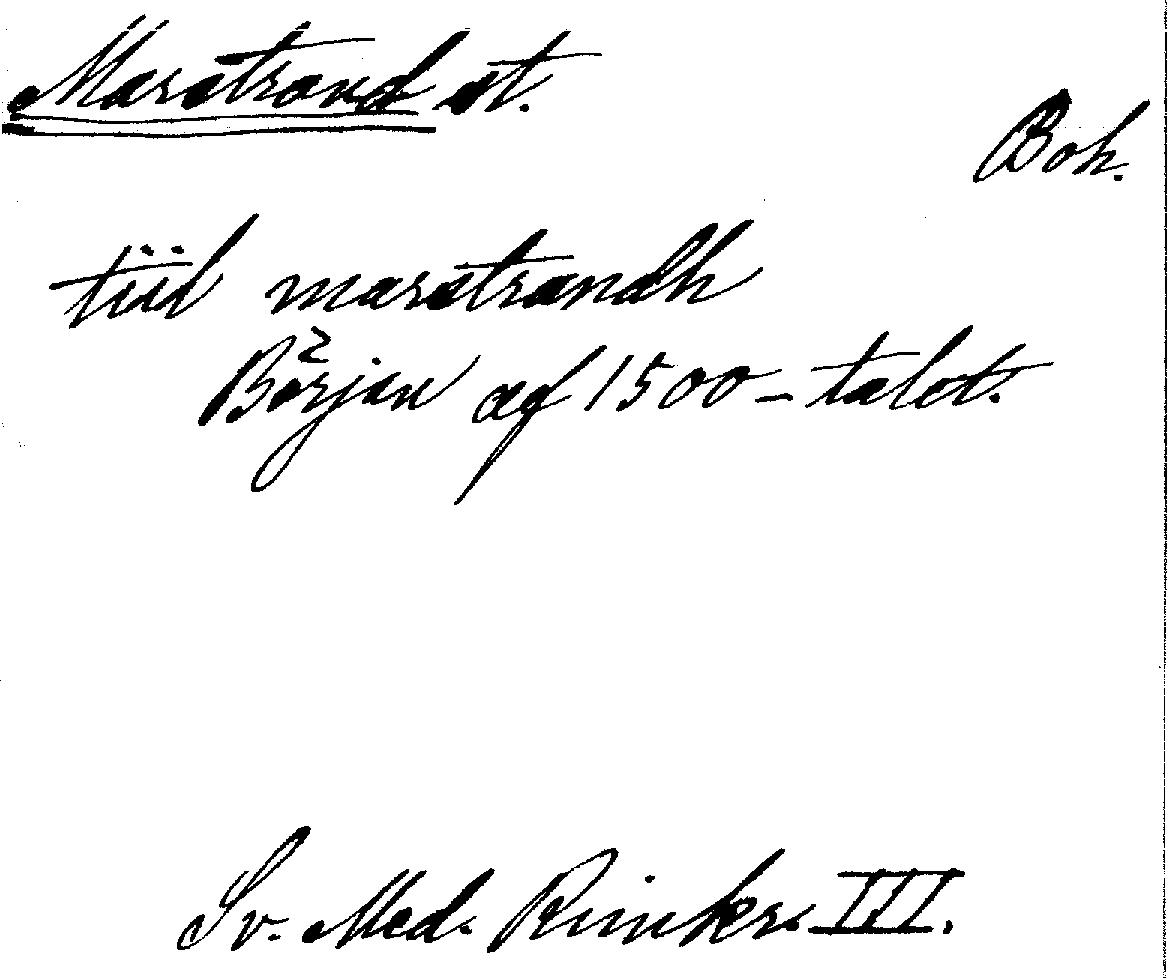 Marstrand st.
Boh.
tiil marstrandh
Början af 1500-talet.
Sv. Med. Rimkr. III.